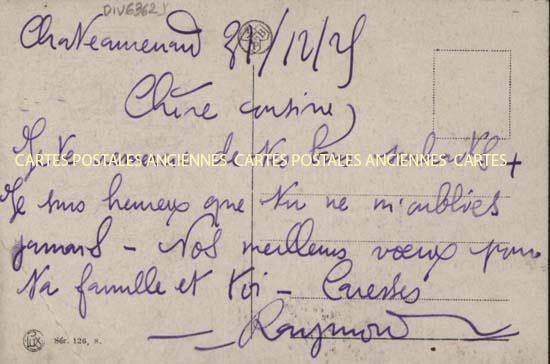 DIV6362
Chateaurenard 31/12/25
Chère cousine,
Je te remercie de tes souhaits +
CARTES POSTALES ANCIENNES CARTES POSTALES ANCIENNES CARTES
Je suis heureux que tu ne m'oublies
jamais - Nos meilleurs voeux pour
ta famille et toi - Caresses
Raymond
LUX Sér. 126, 8.